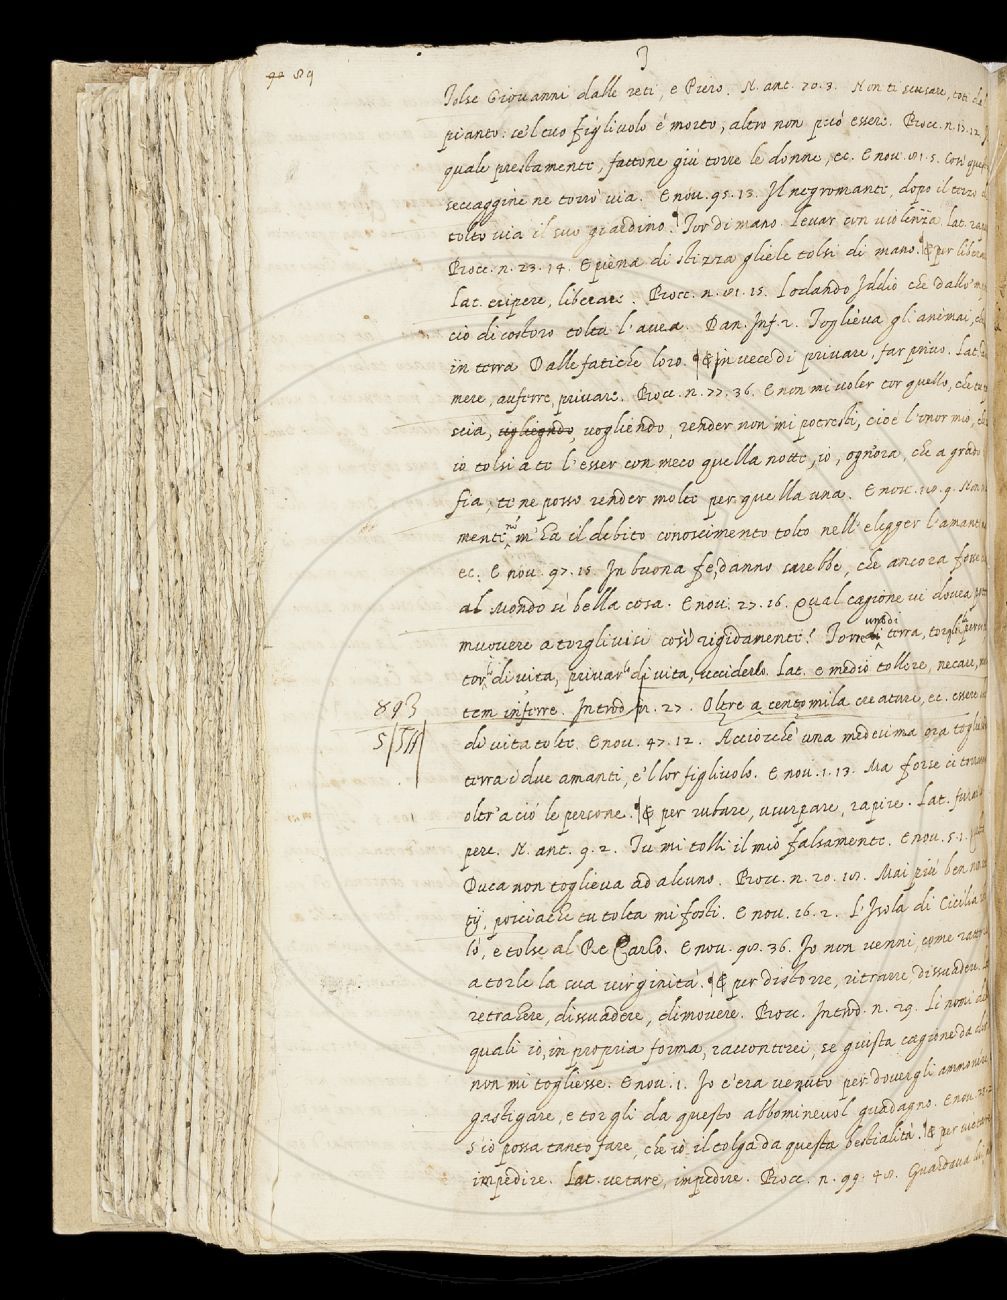 T
89
Tolse Giovanni dalle reti, e Piero. N. ant. 20. 3. Non ti scusare, toti da
pianto: ce'l tuo figlivolo è morto, altro non può essere. Bocc. n. 17. 12.
quale prestamente, fattone giù torre le donne, ec. E nov. 81. 5. Così que
seccaggine ne torrò via. E nov. 95. 13. Il negromante, dopo il terzo
tolto via il suo giardino. Tor di mano. Levar con violenza. Lat. rap
Bocc. n. 23. 14. E piena di stizza gliele tolsi di mano. & per libera
Lat. eripere, liberare. Bocc. n. 81. 15. Lodando Iddio che dallo
ciò di costoro tolta l'avea. Dan. Inf. 2. Toglieva gl'animai, che
in terra Dalle fatiche loro. & in vece di privare, far privo. Lat.
mere, auferre, privare. Bocc. n. 77. 36. E non mi voler tor quello, che
scia, vogliendo, render non mi potresti, cioè l'onor mio,
io tolsi a te l'esser con meco quella notte, io, ogn'ora, che a grado
fia, te ne posso render molte per quella una. E nov. 98. 9. Non
mente, no m'ha il debito conoscimento tolto nell'elegger l'amante
ec. E nov. 97. 15. In buona fe, danno sarebbe, che ancora fosse
al Mondo sì bella cosa. E nov. 27. 16. Qual cagione vi dovea
muovere a torglivisi così rigidamente? Torre uno di terra, torgli
tor di vita, privar di vita, ucciderlo. Lat. e medio tollere, necare,
tem inferre. Introd. n. 27. Oltre a centomila creature, ec. essere
893
di vita tolte. E nov. 47. 12. Acciocchè una medesima ora toglies
terra i due amanti, e'l lor figlivolo. E nov. 1. 13. Ma forse ci torran
oltr'a ciò le persone. & per rubare, usurpare, rapire. Lat. fura
pere. N. ant. 9. 2. Tu mi tolli il mio falsamente. E nov. 5. 1.
Duca non toglieva ad alcuno. Bocc. n. 20. 18. Mai più ben non
tij, posciachè tu tolta mi fosti. E nov. 16. 2. L'Isola di Cicilia
lò, e tolse al Re Carlo. E nov. 98. 36. Io non venni, come ratto
a torle la sua virginità. & per distorre, ritrarre, dissuadere.
retrahere, dissuadere, dimovere. Bocc. Introd. n. 29. Li nomi delle
quali io, in propria forma, racconterei, se giusta cagione da dir
non mi togliesse. E nov. 1. Io c'era venuto per dovergli ammonire
gastigare, e torgli da questo abbominevol guadagno. E nov.
S'io possa tanto fare, che io il tolga da questa bestialità. & per vietare
impedire. Lat. vetare, impedire. Bocc. n. 99. 48. Guardava